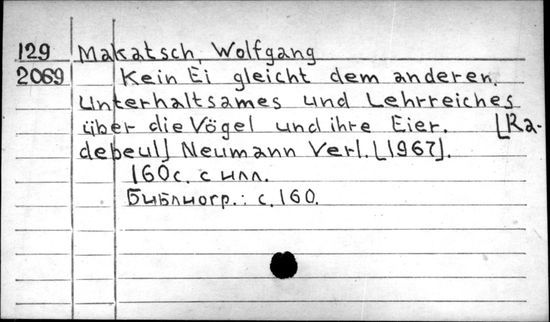 129 Makatsch, Wolfgang
2069 Kein Ei gleicht dem anderen.
Unterhaltsames und Lehrreiches
über die Vögel und ihre Eier. [Ra-
debeul] Neumann Verl. [1967].
160с. с илл.
Библиогр.: с.160.